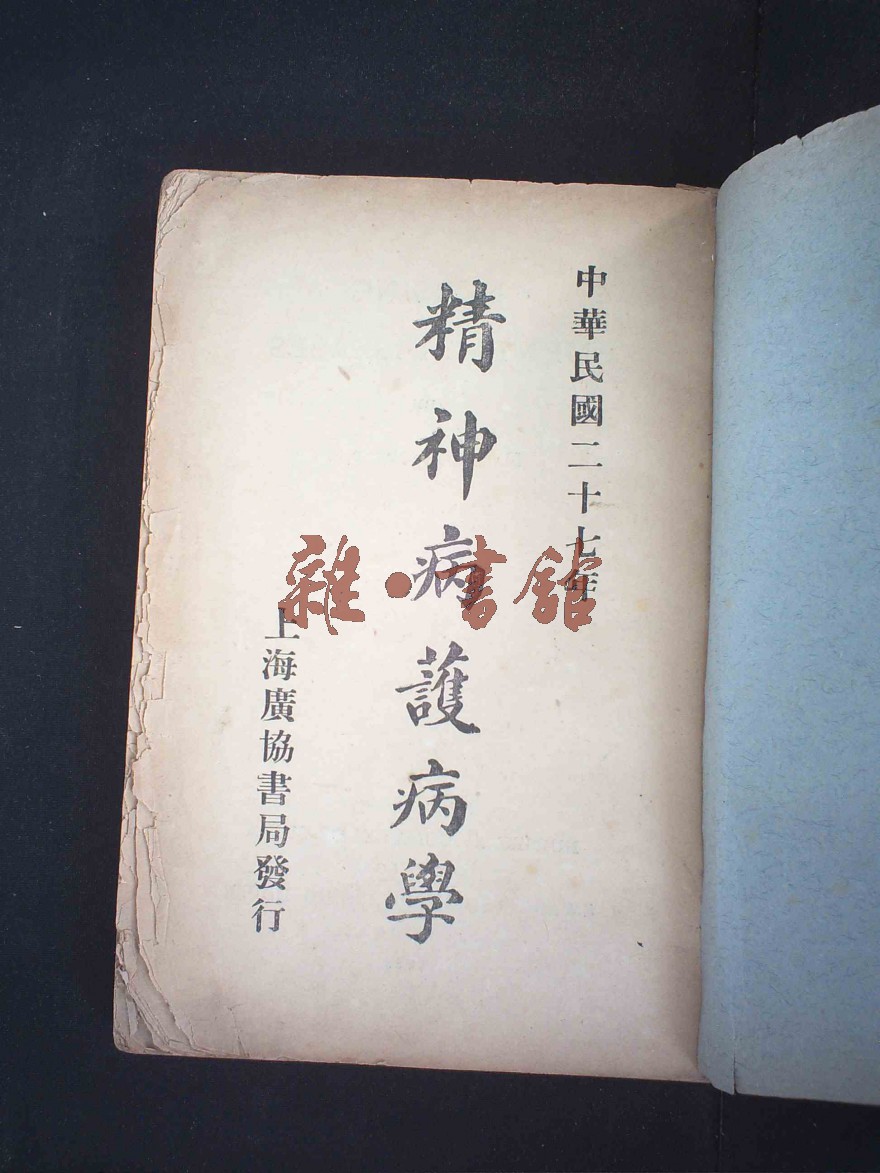 中華民國二十七年
精神病護病學
上海廣協書局發行
雜·書館